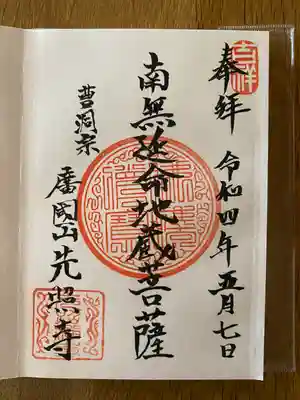 吉祥
奉拝 令和四年五月七日
南無延命地蔵菩薩
曹洞宗
先照寺